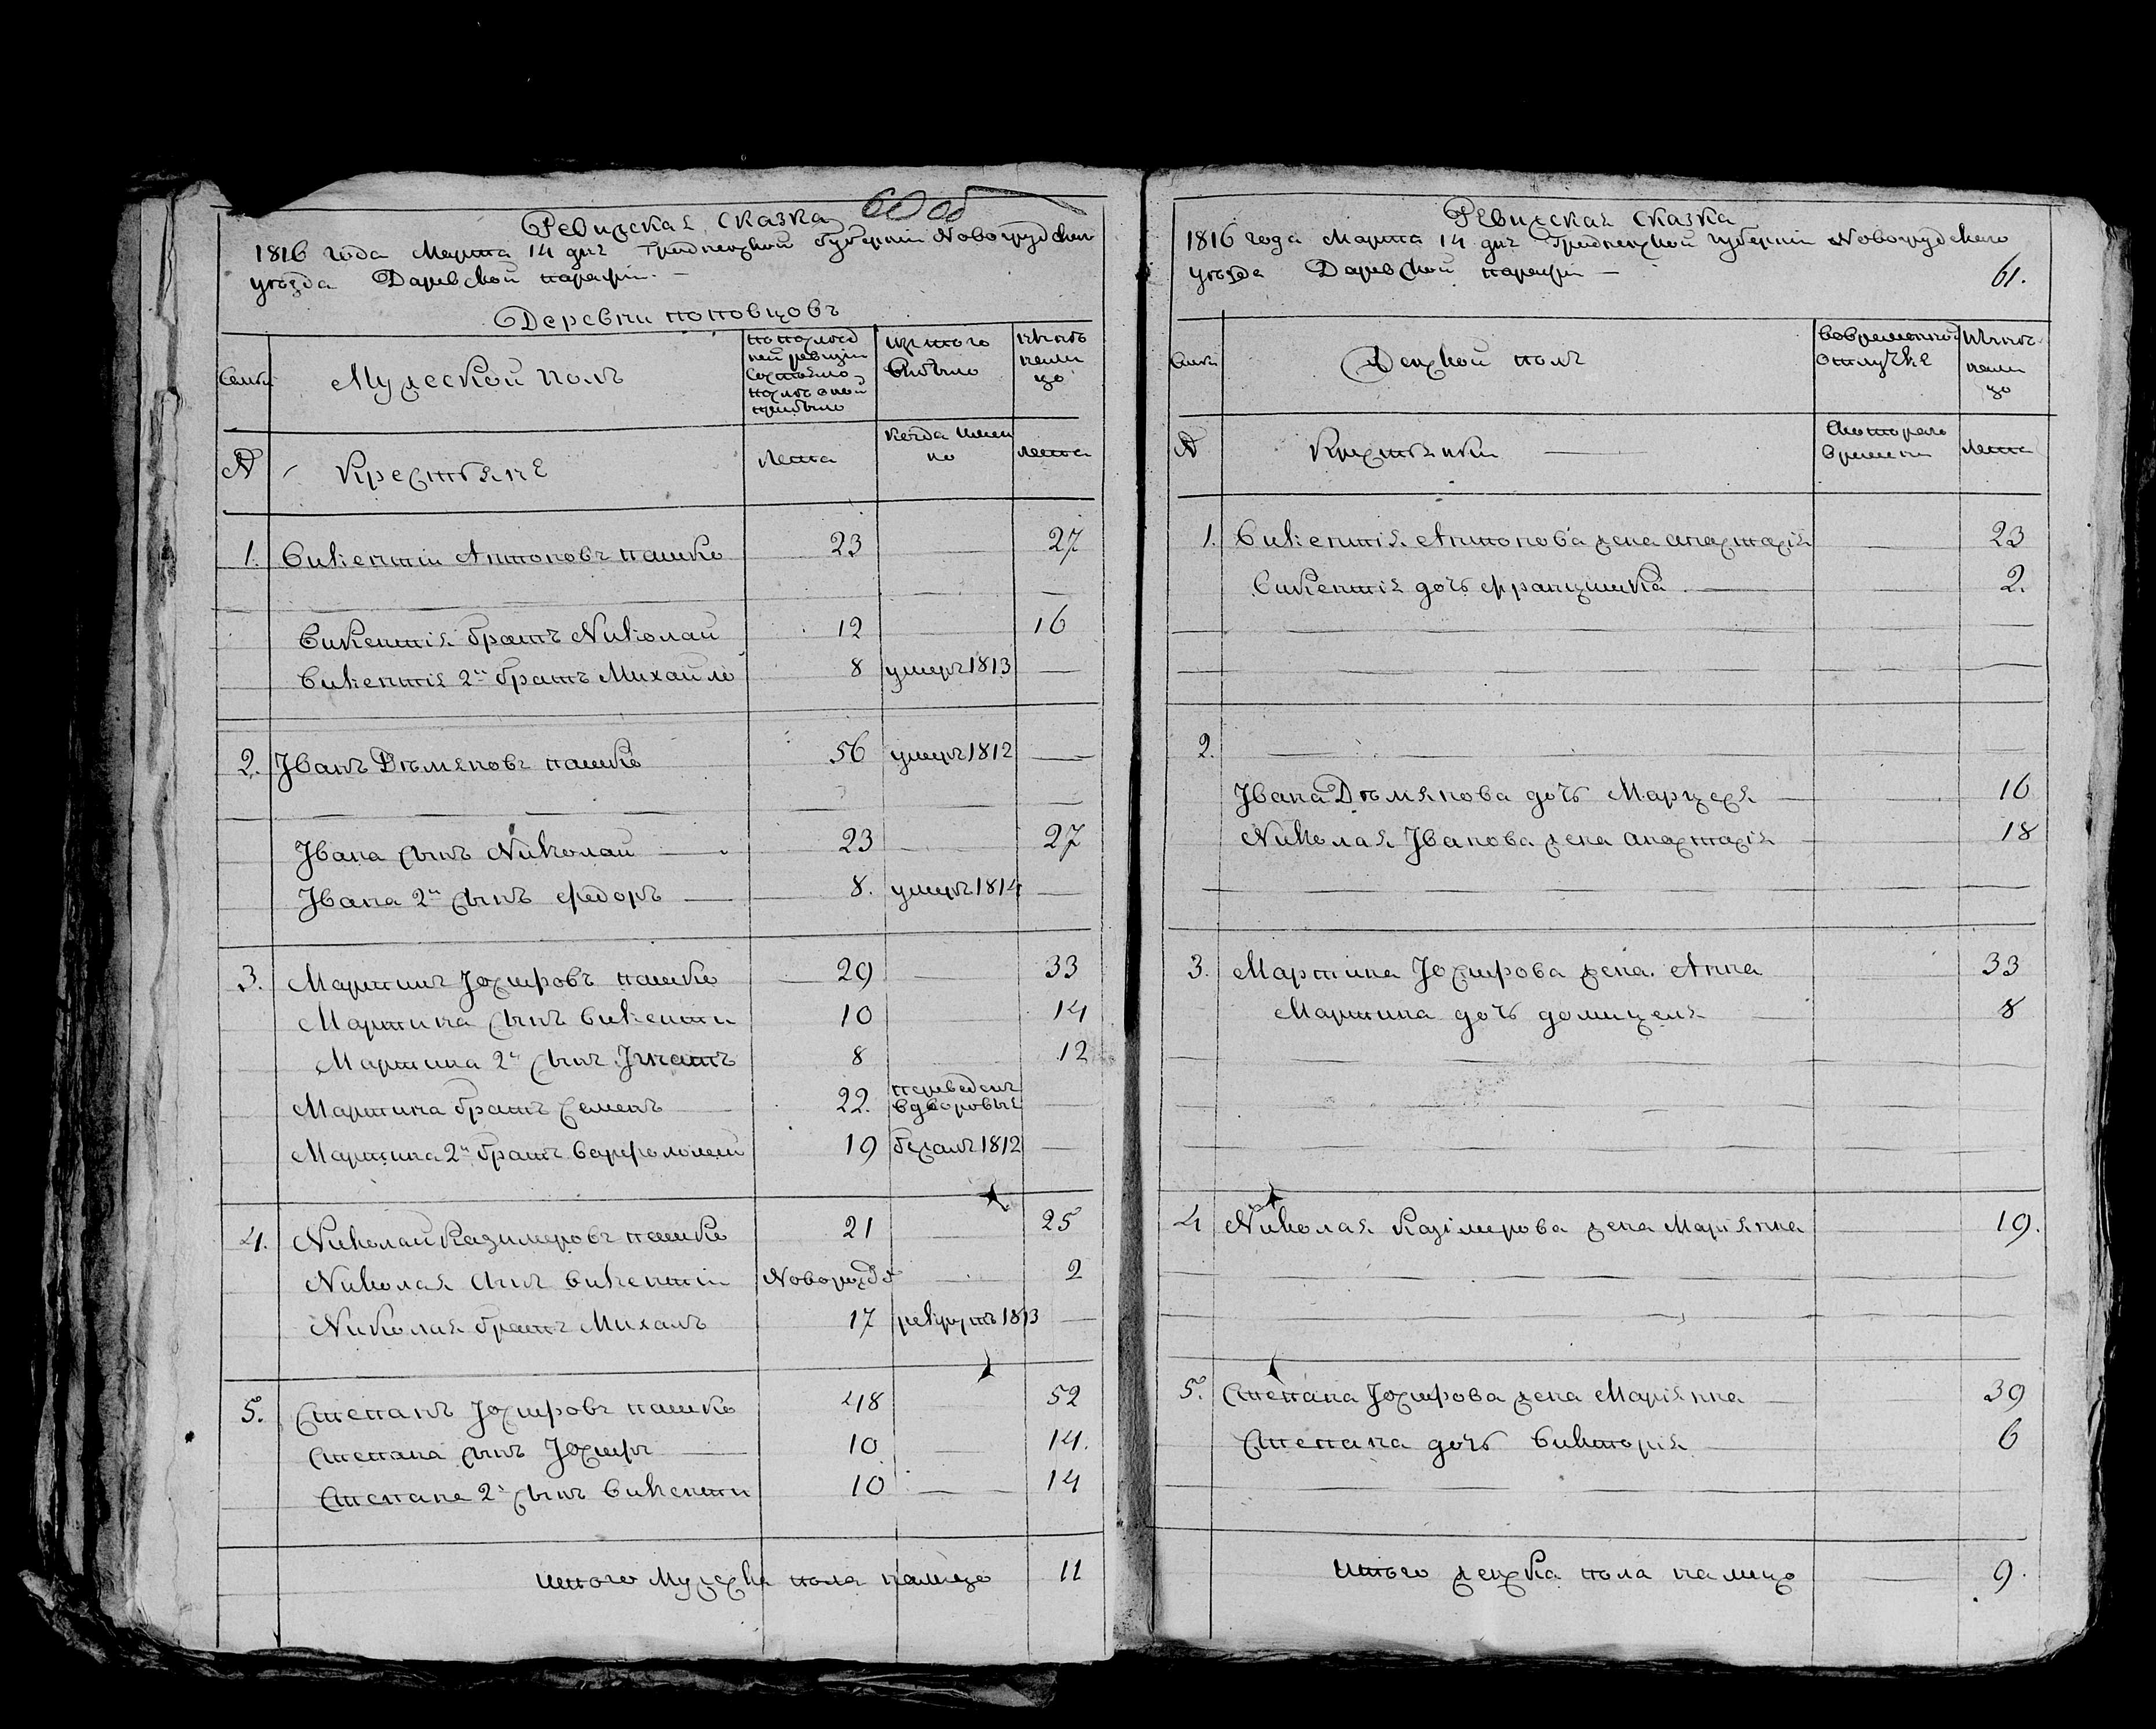 60 об
Ревижская Сказка
1816 года Марта 14 дня Гродненжкой Губернии Новогрудскаго
уезда Даревской парафіи
Деревни Поповцовъ
Семьи
Мужеской полъ
По послед
ней ревизіи
Состояло
после оной
прибыло
Изъ того
выбыло
Ныне
нали
цо
№
Крестьяне
Лета
Когда Имен
но
Лета
1. Викентій Антоновъ Пашко 23 27
Викентія братъ Николай 12 16
Викентія 2й братъ Михайло 8 умеръ 1813
2. Іванъ Дѣмяновъ Пашко 56 умеръ 1812
Івана сынъ Николай 23 27
Івана 2й сынъ Федоръ 8. умеръ 1814
3. Мартинъ Іозифовъ Пашко 29 33
Мартина сынъ Викенти 10 14
Мартина 2й сынъ Ігнатъ 8 12
Мартина братъ Семенъ 22. переведенъ
в дворовыя
Мартина 2й братъ Варфоломей 19 бежалъ 1812
4. Николай Казимеровъ Пашко 21 25
Николая сынъ Викентій Новорожд 2
Николая братъ Михалъ 17 рекрутъ 1813
5. Степанъ Іозифовъ Пашко 48 52
Степана сынъ Іозифъ 10 14.
Степана 2й сынъ Викенти 10 14
Итого Мужеска пола налицо 11
Ревижская Сказка
1816 года Марта 14 дня Гродненжкой губерніи Новогрудскаго
уезда Даревской парафіи
61.
Семьи
Женжкой полъ
Во временной
отлучке
Ныне
нали
цо
№
Крестьянки
С котораго
времени
Лета
1. Викентія Антонова жена Анастасія 23
Викентія дочь Францишка 2.
2.
Івана Дѣмянова дочь Марцеся 16
Николая Іванова жена Анастасія 18
3. Мартина Іозифова жена Анна 33
Мартина дочь Домицеля 8
4 Николая Казімерова жена Маріянна 19.
5. Степана Іозифова жена Маріянна 39
Степана дочь Викторія 6
Итого женска пола налицо 9.